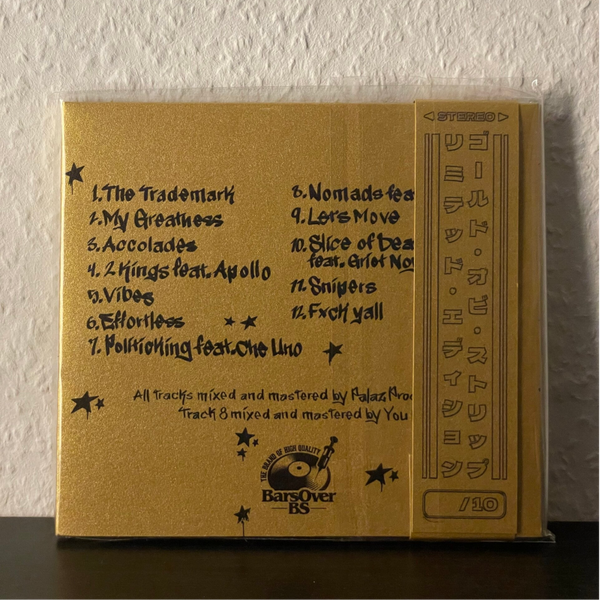 1. The Trademark
2. My Greatness
3. Accolades
4. 2 Kings feat. Apollo
5. Vibes
6. Effortless
7. Politicking feat. Che Uno
8. Nomads fea
9. Let's Move
10. Slice of Dea
feat. Grief No
11. Snipers
12. Fxck yall
All tracks mixed and mastered by Palaz Proc
Track 8 mixed and mastered by You
THE BRAND OF HIGH QUALITY
BarsOver
BS
STEREO
ゴールド・オビ・ストリップ
リミテッド・エディション
/10